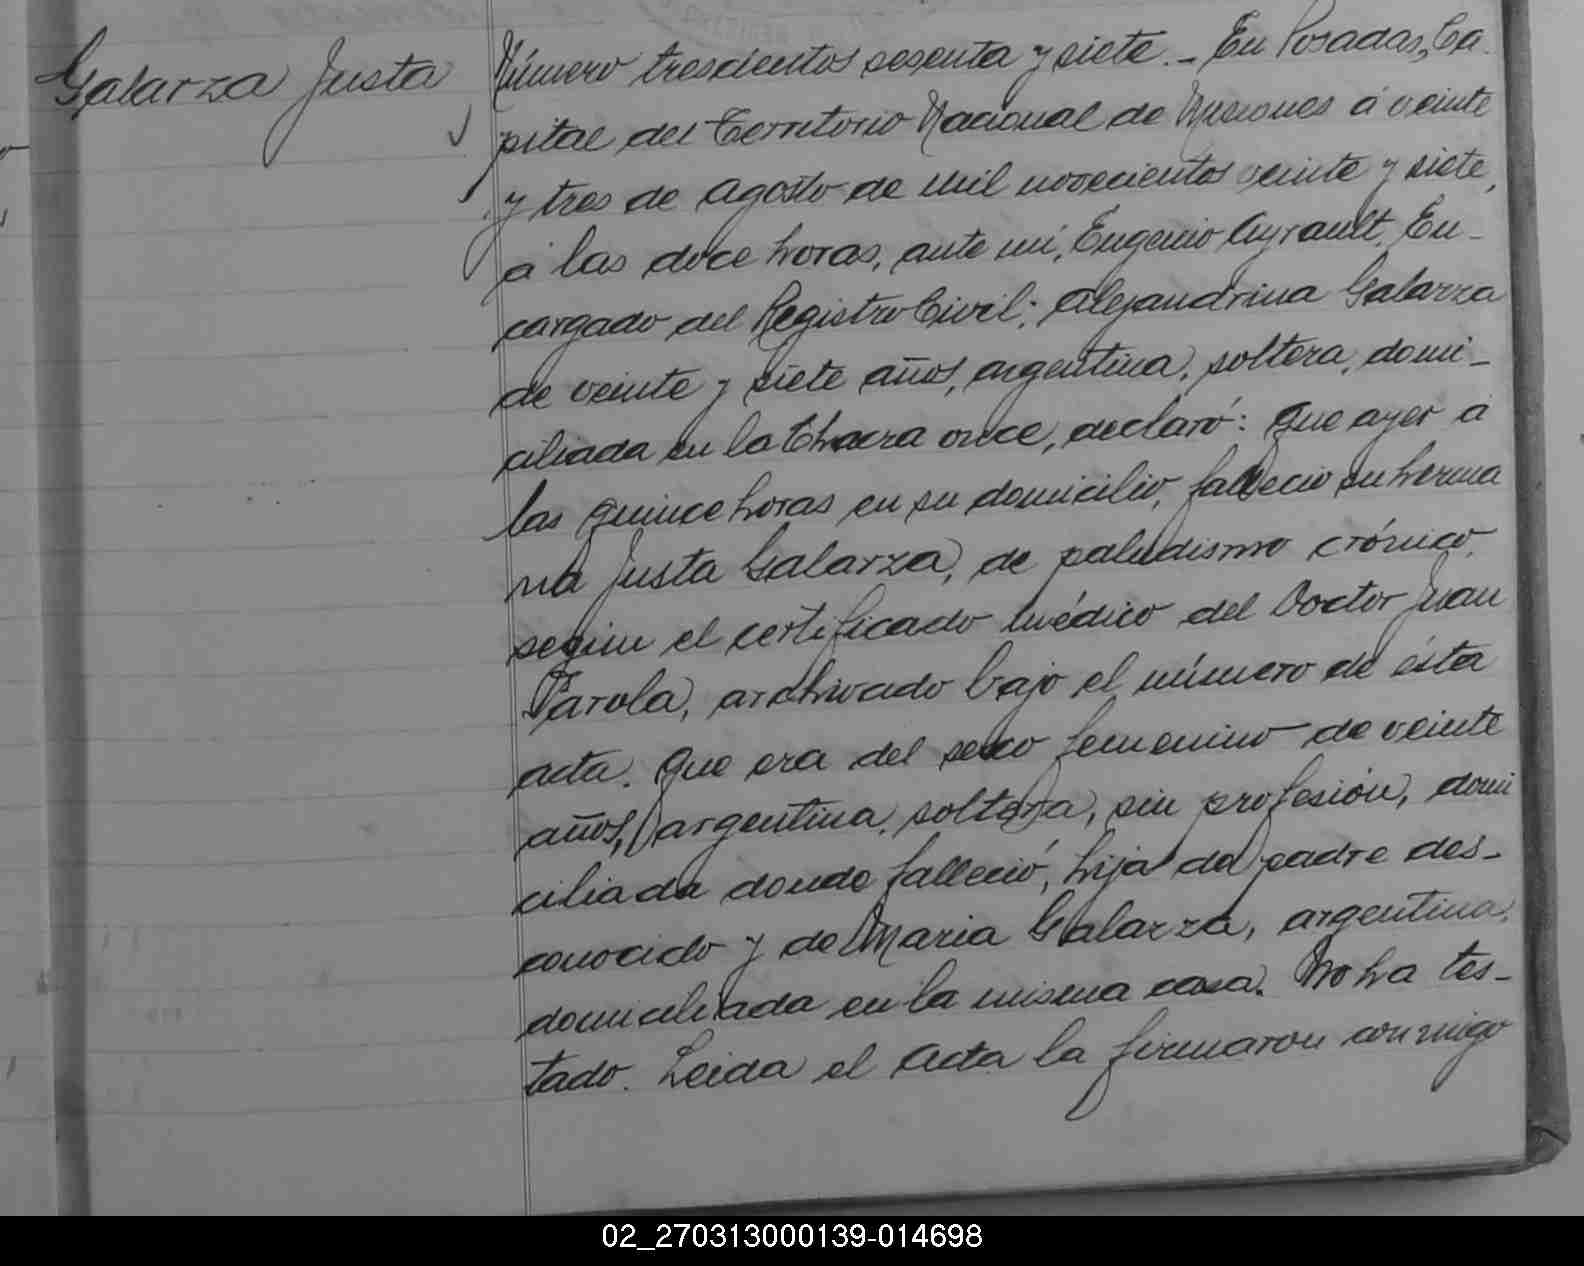 Galarza Justa
Número trescientos sesenta y siete.- En Posadas, Ca-
pital del Territorio Nacional de Misiones á veinte
y tres de agosto de mil novecientos veinte y siete,
á las doce horas, ante mí, Eugenio Ayrault, En-
cargado del Registro Civil; Alejandrina Galarza
de veinte y siete años, argentina, soltera, domi-
ciliada en la Chacra once, declaró: Que ayer á
las quince horas en su domicilio, falleció su herma
na Justa Galarza, de paludismo crónico,
según el certificado médico del Doctor Juan
Parola, archivado bajo el número de ésta
acta. Que era del sexo femenino de veinte
años, argentina, soltera, sin profesión, domi
ciliada donde falleció, hija de padre des-
conocido y de Maria Galarza, argentina,
domiciliada en la misma casa. No ha tes-
tado. Leida el Acta la firmaron conmigo
02_270313000139-014698